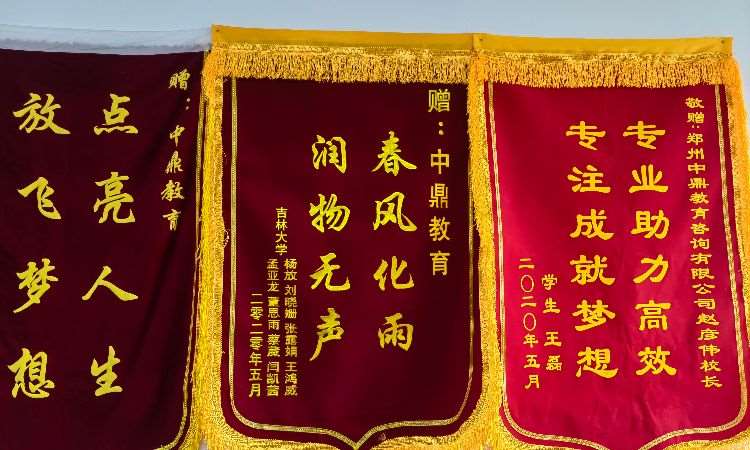 赠：中鼎教育
点亮人生
放飞梦想
赠：中鼎教育
春风化雨
润物无声
吉林大学
杨放 刘晓姗 张霏娟 王鸿威
孟亚龙 董恩雨 蔡薇 闫凯茜
二零二零年五月
敬赠：郑州中鼎教育咨询有限公司赵彦伟校长
专业助力高效
专注成就梦想
学生 王磊
二〇二〇年五月